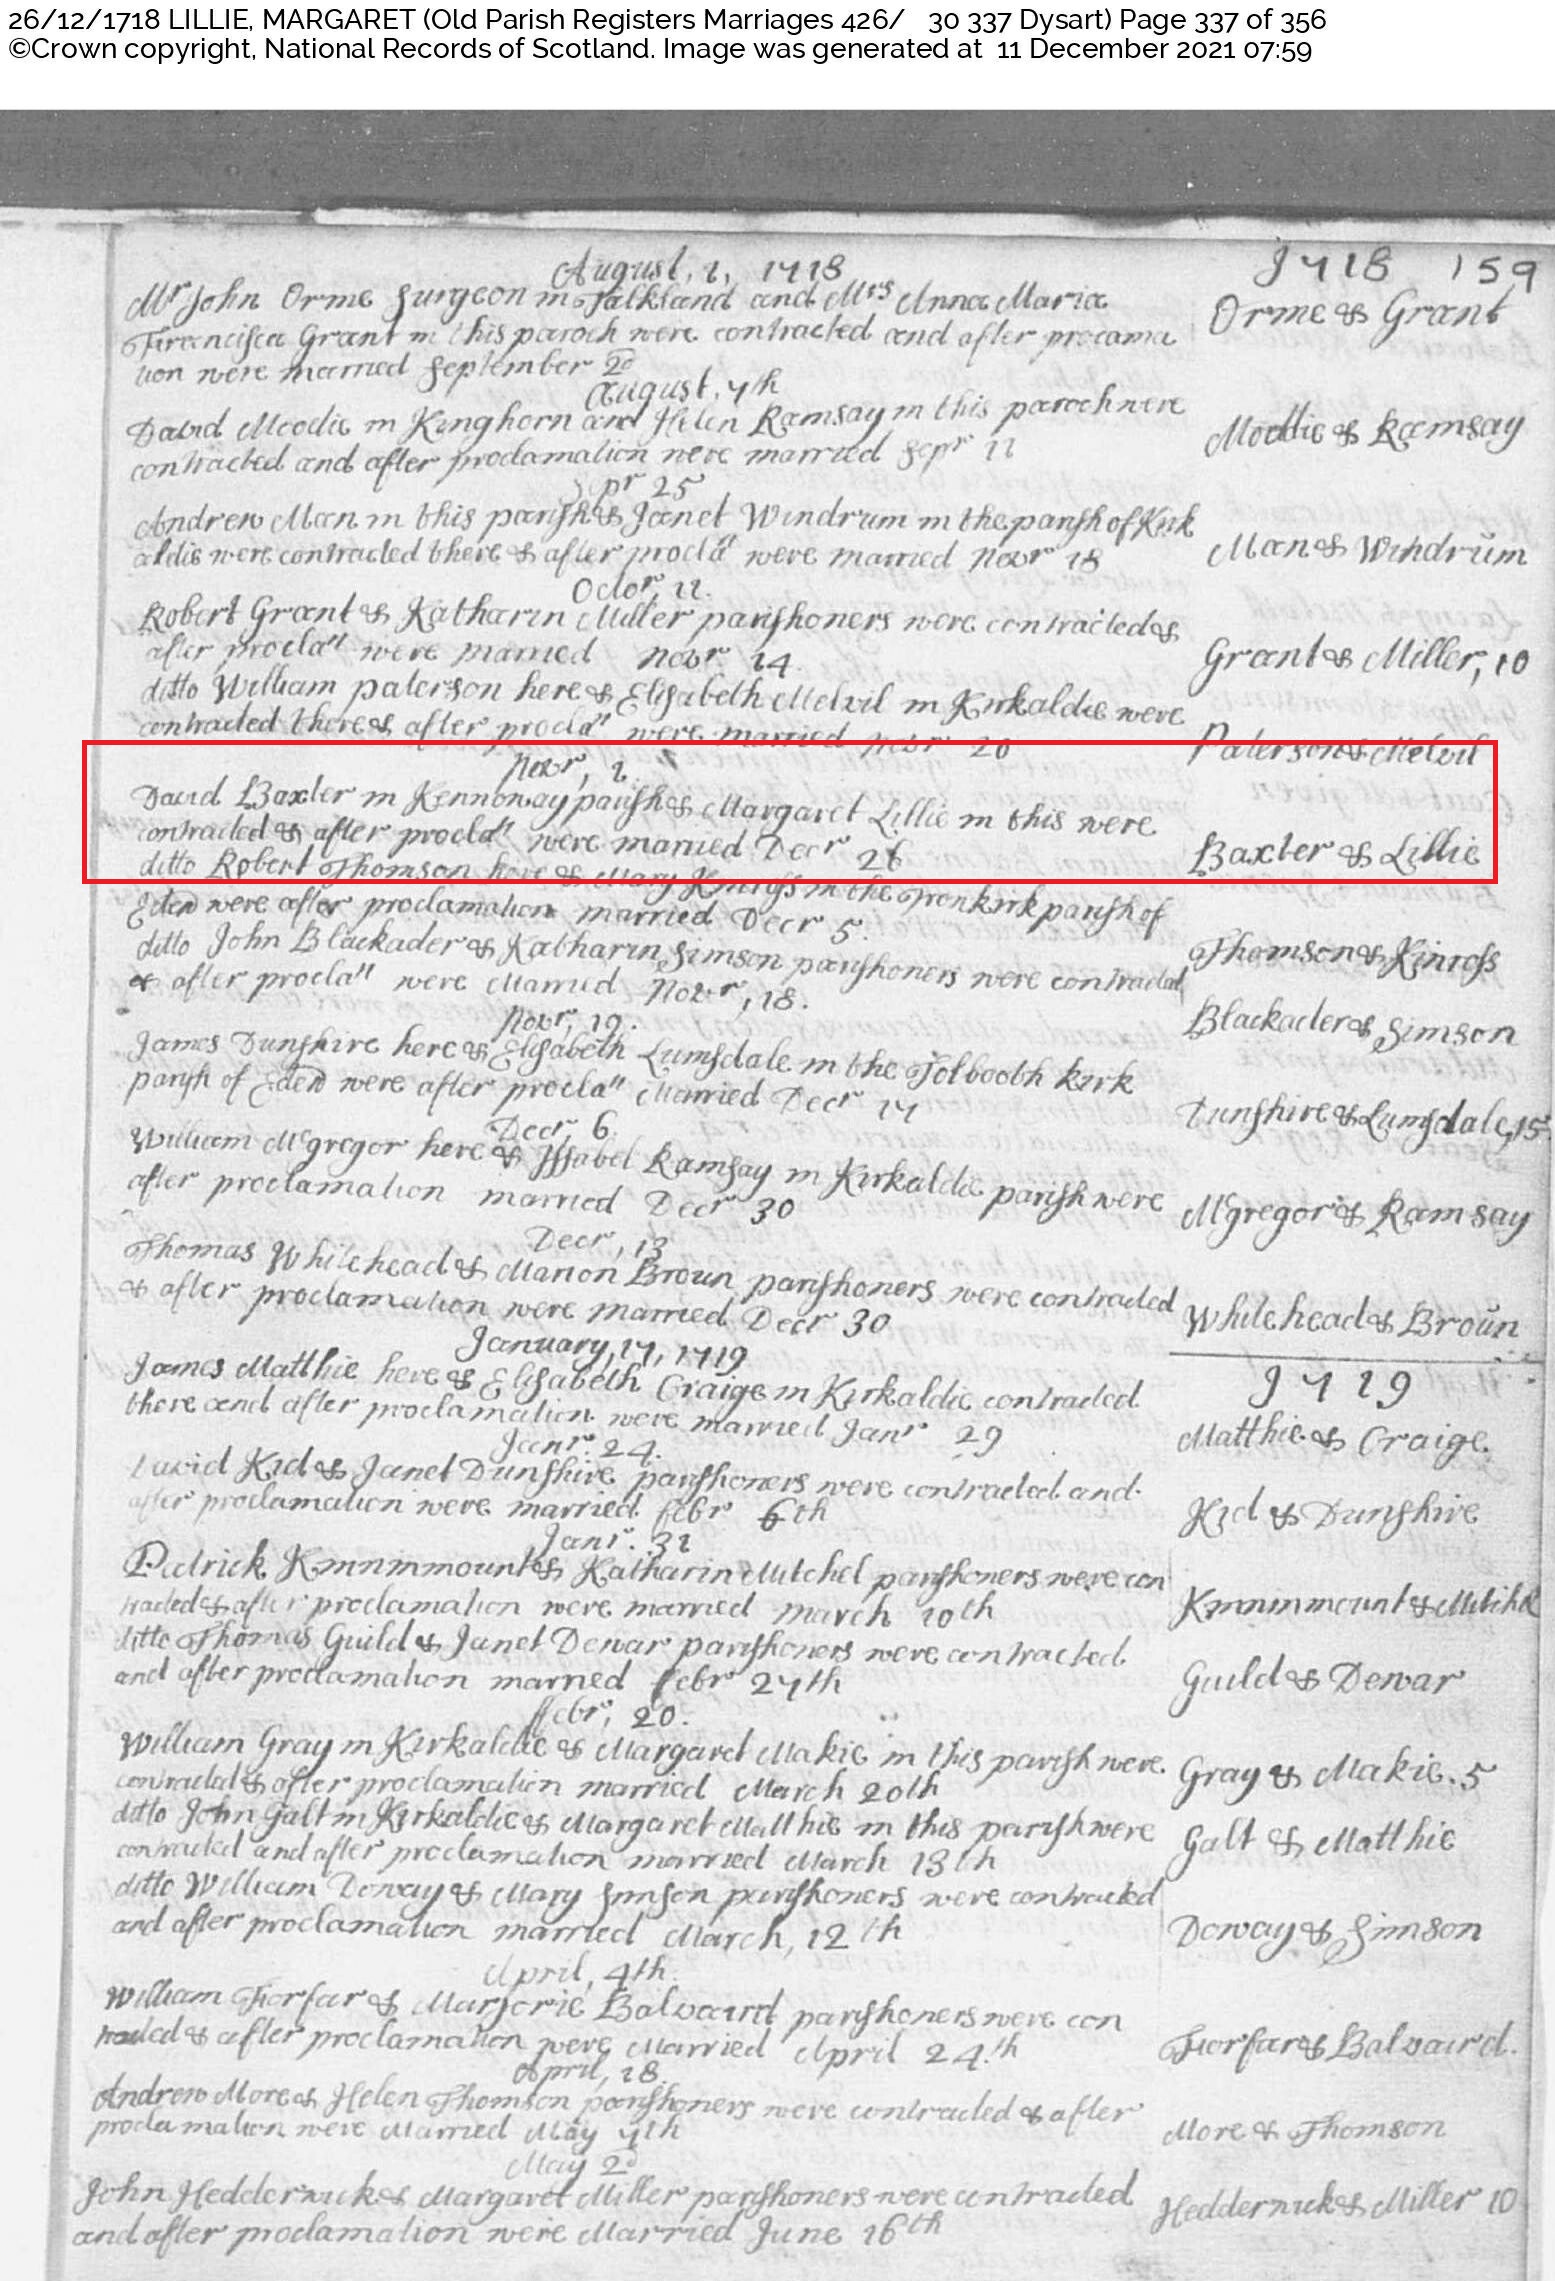 26/12/1718 LILLIE, MARGARET (Old Parish Registers Marriages 426/ 30 337 Dysart) Page 337 of 356
©Crown copyright, National Records of Scotland. Image was generated at 11 December 2021 07:59
August, 1, 1718
1718 159
Mr John Orme Surgeon in Falkland and Mrs Anna Maria
Francisca Grant in this paroch were contracted and after procama
tion were married September 2d
Orme & Grant
August, 7th
David Moodie in Kinghorn and Helen Ramsay in this paroch were
contracted and after proclamation were married Sepr 11
Moodie & Ramsay
Sepr 25
Andrew Man in this parish & Janet Windrum in the parish of Kirk
aldie were contracted there & after proclan were married Novr 18
Man & Windrum
Octor, 11.
Robert Grant & Katharin Miller parishoners were contracted &
after proclan were married Novr. 14
Grant & Miller, 10
ditto William paterson here & Elisabeth Melvil in Kirkaldie were
contracted there & after proclan were married Novr 20
Paterson & Melvil
Novr, 1
David Baxter in Kennoway parish & Margaret Lillie in this were
contracted & after proclan were married Decr 26
Baxter & Lillie
ditto Robert Thomson here & Mary Kinross in the Tronkirk parish of
Eden were after proclamation married Decr 5.
Thomson & Kinross
ditto John Blackader & Katharin Simson parishoners were contracted
& after proclan were Married Novr, 18.
Blackader & Simson
Novr, 19.
James Dunshire here & Elisabeth Lumsdale in the Tolbooth kirk
parish of Eden were after proclan Married Decr 17
Dunshire & Lumsdale, 15
Decr, 6
William Mcgregor here & Issabel Ramsay in Kirkaldie parish were
after proclamation married Decr 30
Mcgregor & Ramsay
Decr, 13
Thomas Whitehead & Marion Broun parishoners were contracted
& after proclamation were married Decr 30
Whitehead & Broun
January, 17, 1719
1719
James Matthie here & Elisabeth Craige in Kirkaldie contracted
there and after proclamation were married Janr 29
Matthie & Craige
Janr. 24.
David Kid & Janet Dunshire parishoners were contracted and
after proclamation were married febr 6th
Kid & Dunshire
Janr. 31
Patrick Kinninmount & Katharin Mitchel parishoners were con
tracted & after proclamation were married march 10th
Kinninmount & Mitchel
ditto Thomas Guild & Janet Dewar parishoners were contracted
and after proclamation married febr 27th
Guild & Dewar
ffebr, 20.
William Gray in Kirkaldie & Margaret Makie in this parish were
contracted & after proclamation married March 20th
Gray & Makie. 5
ditto John Galt in Kirkaldie & Margaret Matthie in this parish were
contracted and after proclamation married March 13th
Galt & Matthie
ditto William Doway & Mary Simson parishoners were contracted
and after proclamation married March, 12th
Doway & Simson
April, 4th.
William Forfar & Marjorie Balvaird parishoners were con
tracted & after proclamation were Married April 24.th
Forfar & Balvaird.
April, 18.
Andrew More & Helen Thomson parishoners were contracted & after
proclamation were Married May 7th
More & Thomson
May 2d
John Hedderwick & Margaret Miller parishoners were contracted
and after proclamation were Married June 16th
Hedderwick & Miller 10